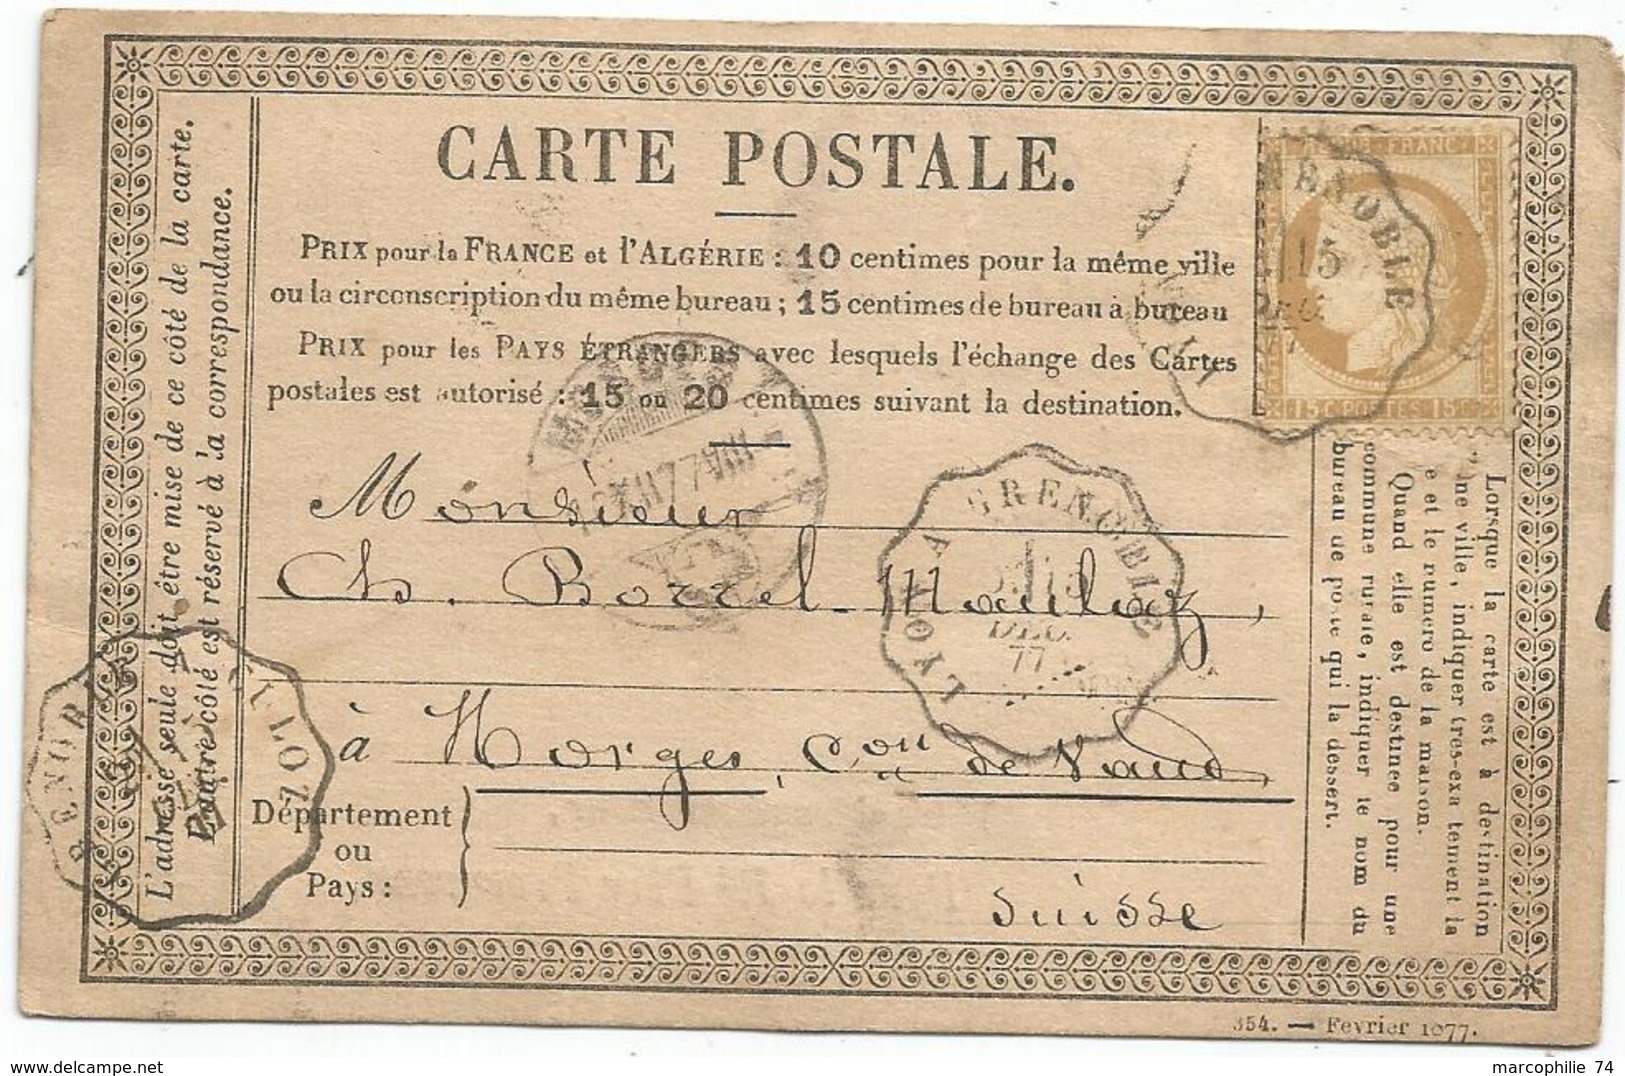 CARTE POSTALE.
PRIX pour la FRANCE et l'ALGÉRIE : 10 centimes pour la même ville
ou la circonscription du même bureau ; 15 centimes de bureau à bureau
PRIX pour les PAYS ÉTRANGERS avec lesquels l'échange des Cartes
postales est autorisé : 15 ou 20 centimes suivant la destination.
Monsieur
Ch. Borrel-Maulaz,
à Morges, Con de Vaud,
Département
ou
Pays :
Suisse
L'adresse seule doit être mise de ce côté de la carte.
L'autre côté est réservé à la correspondance.
Lorsque la carte est à destination
ne ville, indiquer très-exa tement la
e et le numéro de la maison.
Quand elle est destinée pour une
commune rurale, indiquer le nom du
bureau de poste qui la dessert.
FRANC
15 C POSTES 15 C
ENOBLE
15
DEC
LYON A GRENOBLE
15
DEC.
77
MORGES
XII 77
CULOZ
354. — Fevrier 1877.
marcophilie 74